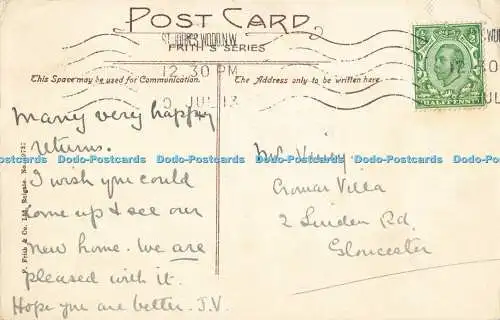 POST CARD
ST JOHN'S WOOD N.W.
FRITH'S SERIES
12 30 PM
JUL 13
This Space may be used for Communication.
The Address only to be written here.
HALFPENNY
Many very happy
returns.
I wish you could
come up & see our
new home. We are
pleased with it.
Hope you are better. J.V.
Cromar Villa
2 Linden Rd.
Gloucester
F. Frith & Co. Ltd. Reigate. No.
Dodo-Postcards Dodo-Postcards Dodo-Postcards Dodo-Postcards Dodo-Postcards